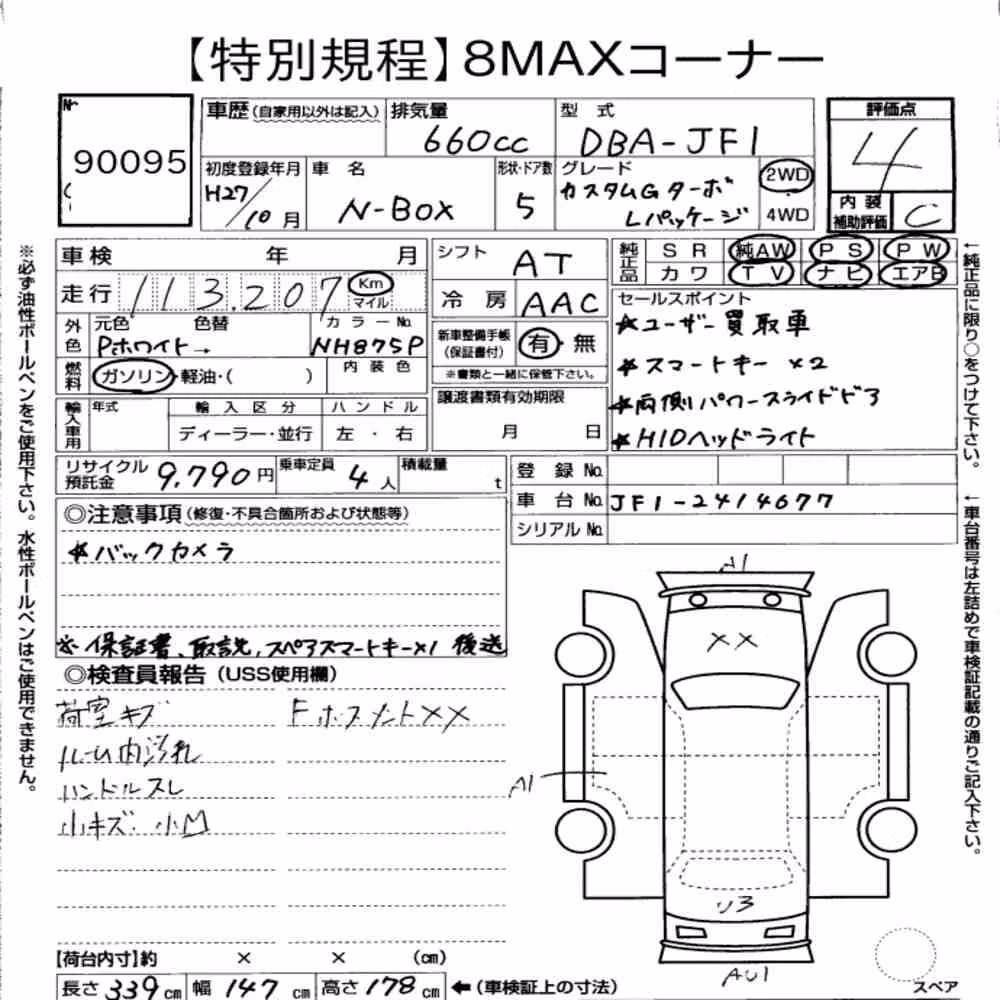 【特別規程】8MAXコーナー
№ 90095
車歴(自家用以外は記入)
排気量 660cc
型式 DBA-JF1
評価点 4
初度登録年月 H27/10月
車名 N-BOX
形状・ドア数 5
グレード カスタムG ターボ
Lパッケージ
2WD
4WD
内装補助評価 C
車検 年 月
走行 113,207 Km マイル
シフト AT
冷房 AAC
純正品 SR 純AW PS PW
カワ TV ナビ エアB
外色 元色 色替 カラーNo.
Pホワイト→ NH875P
燃料 ガソリン・軽油・( )
内装色
新車整備手帳(保証書付) 有・無
※書類と一緒に保管下さい。
セールスポイント
★ユーザー買取車
★スマートキー×2
★両側パワースライドドア
★HIDヘッドライト
輸入車用 年式 輸入区分 ハンドル
ディーラー・並行 左・右
譲渡書類有効期限
月 日
リサイクル預託金 9,790円
乗車定員 4人
積載量 t
登録No.
車台No. JF1-2414677
シリアルNo.
◎注意事項(修復・不具合箇所および状態等)
★バックカメラ
※保証書、取説、スペアスマートキー×1 後送
◎検査員報告(USS使用欄)
荷室キズ FホフメントXX
ルーム内汚れ
ハンドルスレ
小キズ・小凹
A1
XX
A1
U3
AU1
スペア
【荷台内寸】約 × × (cm)
長さ339cm 幅147cm 高さ178cm ←(車検証上の寸法)
※必ず油性ボールペンをご使用下さい。水性ボールペンはご使用できません。
←純正品に限り○をつけて下さい。
←車台番号は左詰めで車検証記載の通りご記入下さい。